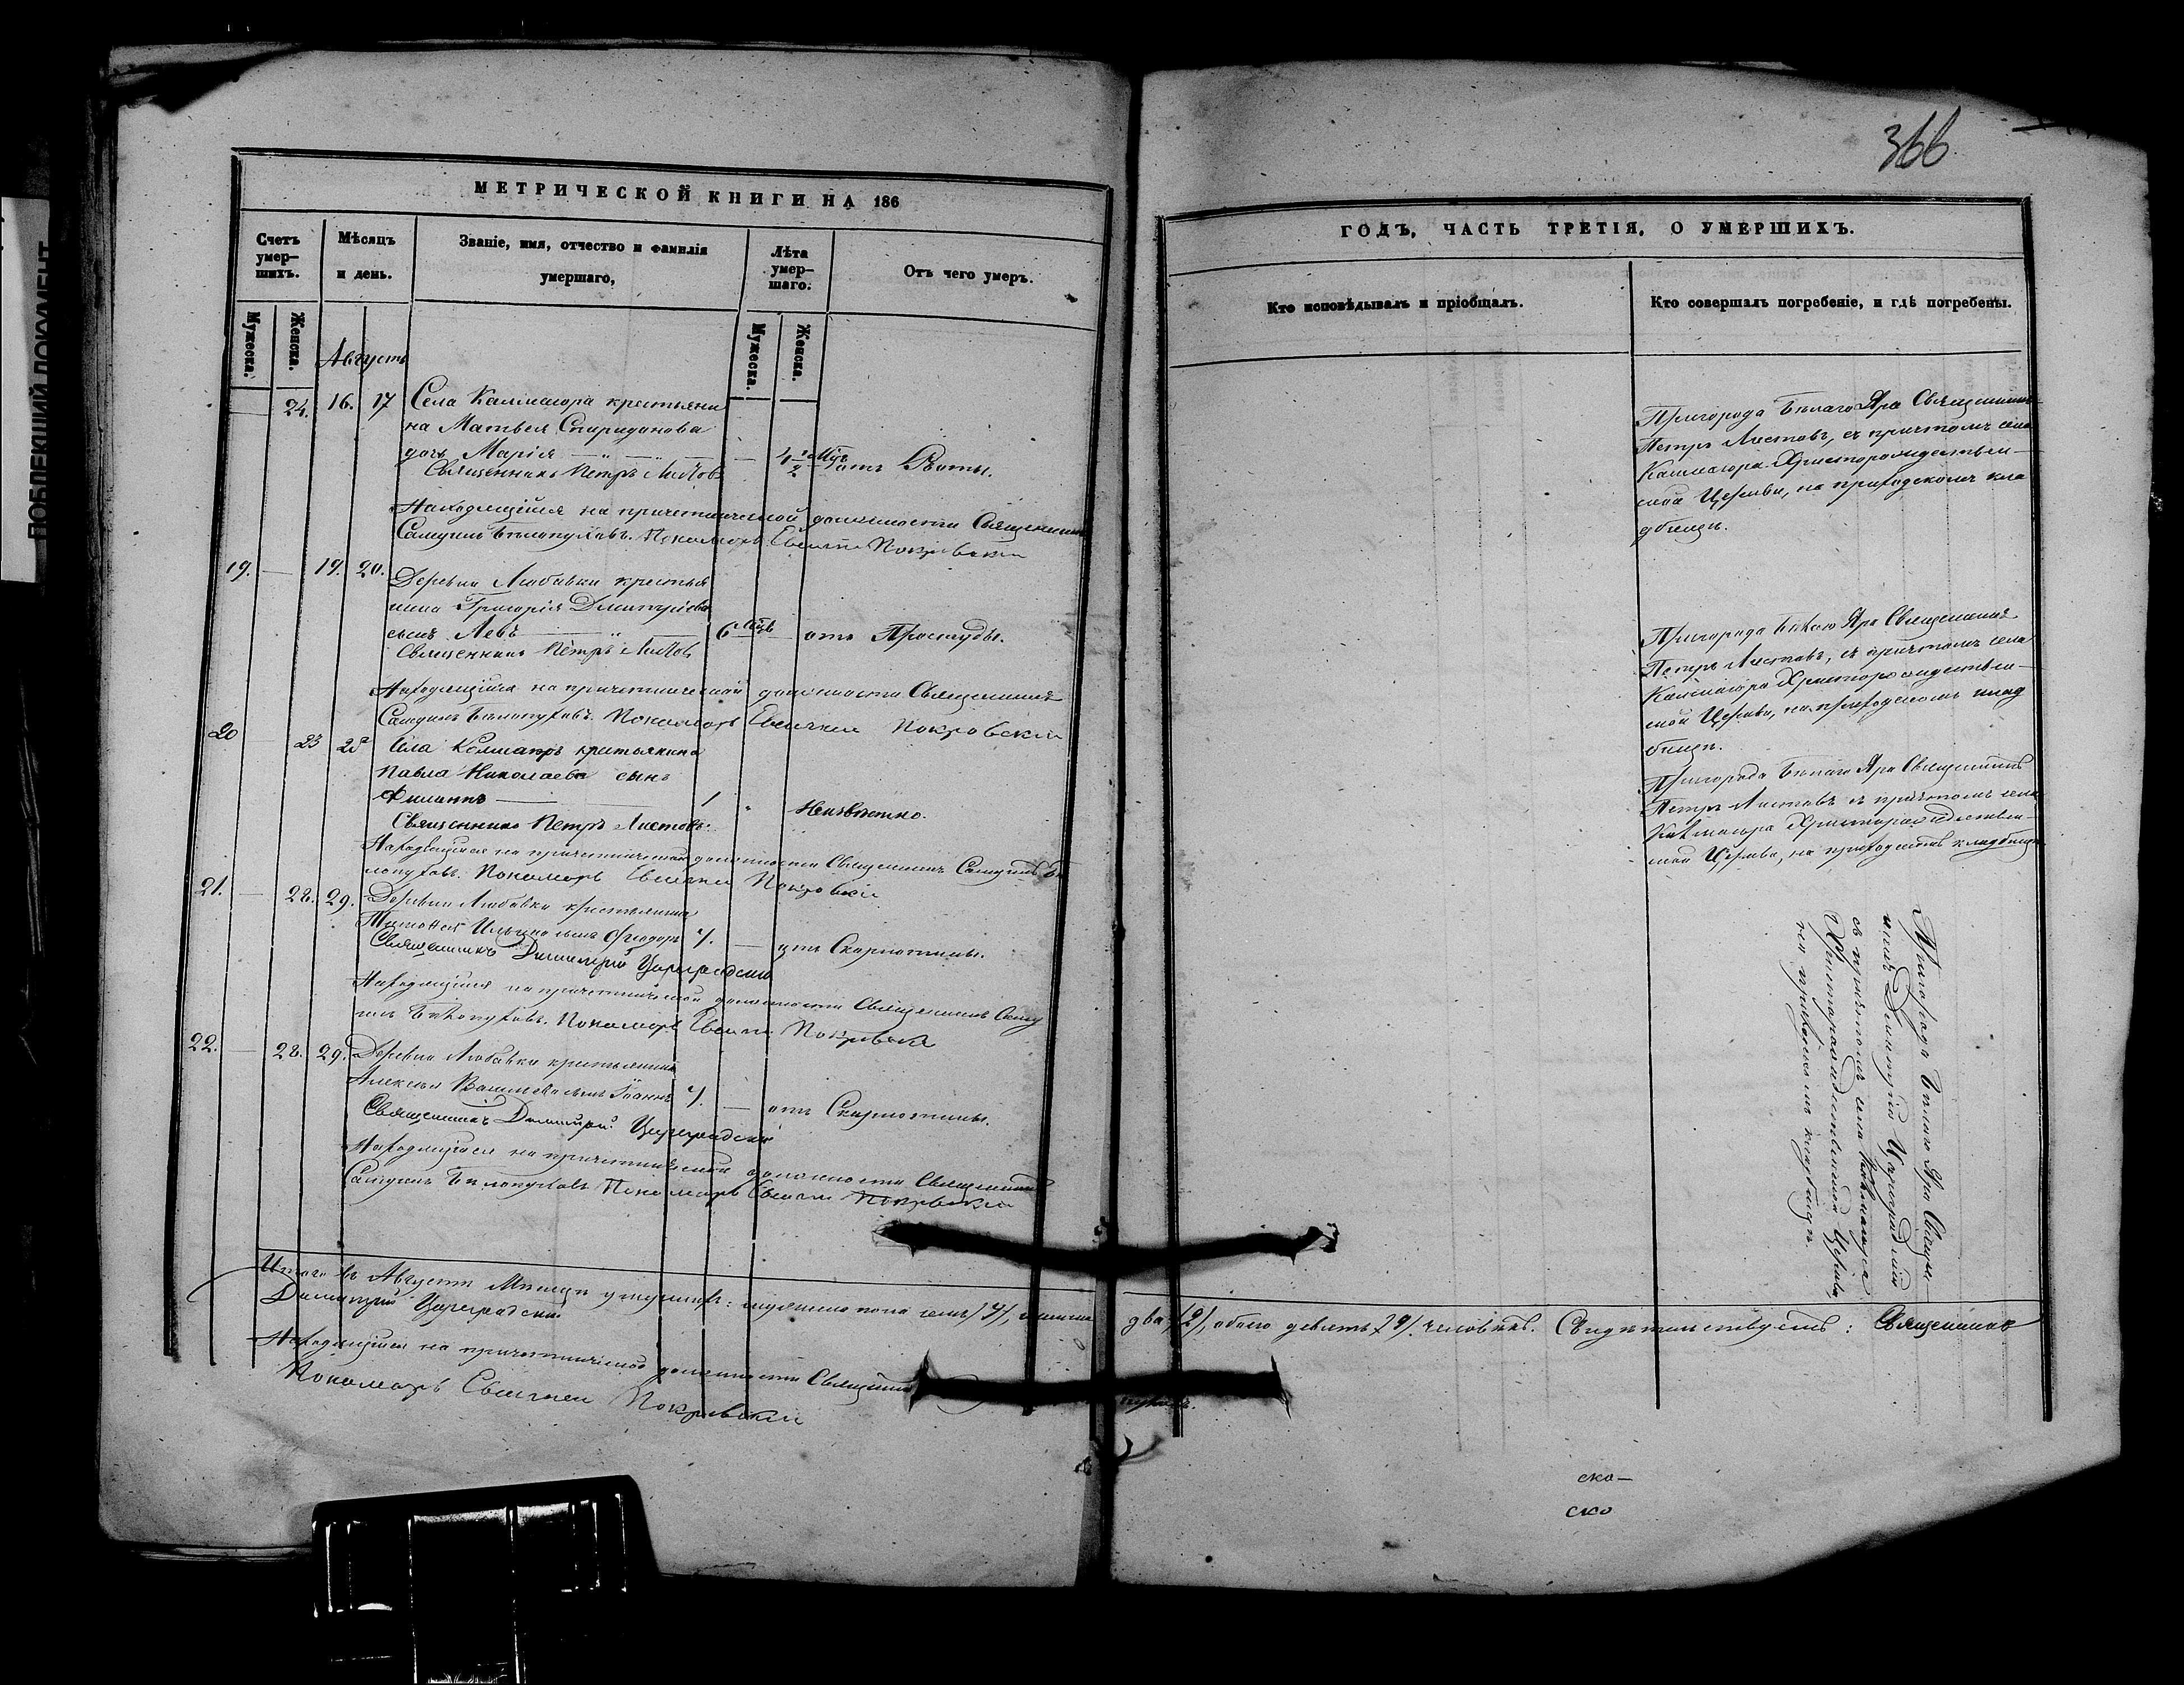 366
МЕТРИЧЕСКОЙ КНИГИ НА 186
Счетъ умер-
шихъ.
Мѣсяцъ
и день.
Званіе, имя, отчество и фамилія
умершаго,
Лѣта
умер-
шаго.
Отъ чего умеръ.
Мужеска.
Женска.
Мужеска.
Женска.
Августъ
24. 16. 17 Села крестьяни
на Матвея Спиридонова
дочь Марія
4 1/2 отъ Рвоты.
Священникъ Петръ Листовъ
Находящійся на причетнической должности Священникъ
Самуилъ Бѣлопуховъ. Пономарь Евгеній Покровскій
19. 19. 20. Деревни Любавки крестья
нина Григорія Димитріева
сынъ Левъ 6 отъ Простуды.
Священникъ Петръ Листов
Находящійся на причетнической должности Священникъ
Самуилъ Бѣлопуховъ. Пономарь Покровскій
20 23 25 Села крестьянина
Павла Николаева сынъ
Филиппъ 1 Неизвѣстно.
Священникъ Петръ Листовъ.
Находящійся на причетнической должности Священникъ Самуилъ Бѣ
лопуховъ. Пономарь Покровскій
21. 28. 29. Деревни Любавки крестьянина
Ильина сынъ Ѳеодоръ 4. отъ Скарлотины.
Священникъ Димитрій Цареградскій
Находящійся на причетнической должности Священникъ Саму
илъ Бѣлопуховъ. Пономарь Покровскій
22. 28. 29. Деревни Любавки крестьянина
Алексѣя Васильева сынъ Іоаннъ 4. отъ Скарлотины.
Священникъ Димитрій Цареградскій
Находящійся на причетнической должности Священникъ
Самуилъ Бѣлопуховъ Пономарь Покровскій
Итого въ Августѣ Мѣсяцѣ умершихъ: мужеска пола семь /7/, женска
два /2/, обоего девять /9/ человѣкъ. Свидѣтельствуемъ: Священникъ
Димитрій Цареградскій
Находящійся на причетнической должности Священникъ
Пономарь Покровскій
ГОДЪ, ЧАСТЬ ТРЕТІЯ, О УМЕРШИХЪ.
Кто исповѣдывалъ и пріобщалъ.
Кто совершалъ погребеніе, и гдѣ погребены.
Пригорода Бѣлаго Яра Священникъ
Петръ Листовъ, съ причтомъ села
Христорождествен-
ской Церкви, на приходскомъ кла
дбищѣ.
Пригорода Бѣлаго Яра Священникъ
Петръ Листовъ, съ причтомъ села
Христорождествен-
ской Церкви, на приходскомъ клад
бищѣ.
Пригорода Бѣлаго Яра Священникъ
Петръ Листовъ съ причтомъ села
Христорождествен-
ской Церкви, на приходскомъ кладбищѣ
Пригорода Бѣлаго Яра Священ-
никъ Димитрій Цареградскій
съ причтомъ села
Христорождественской Церкви
на приходскомъ кладбищѣ.
ска-
ско